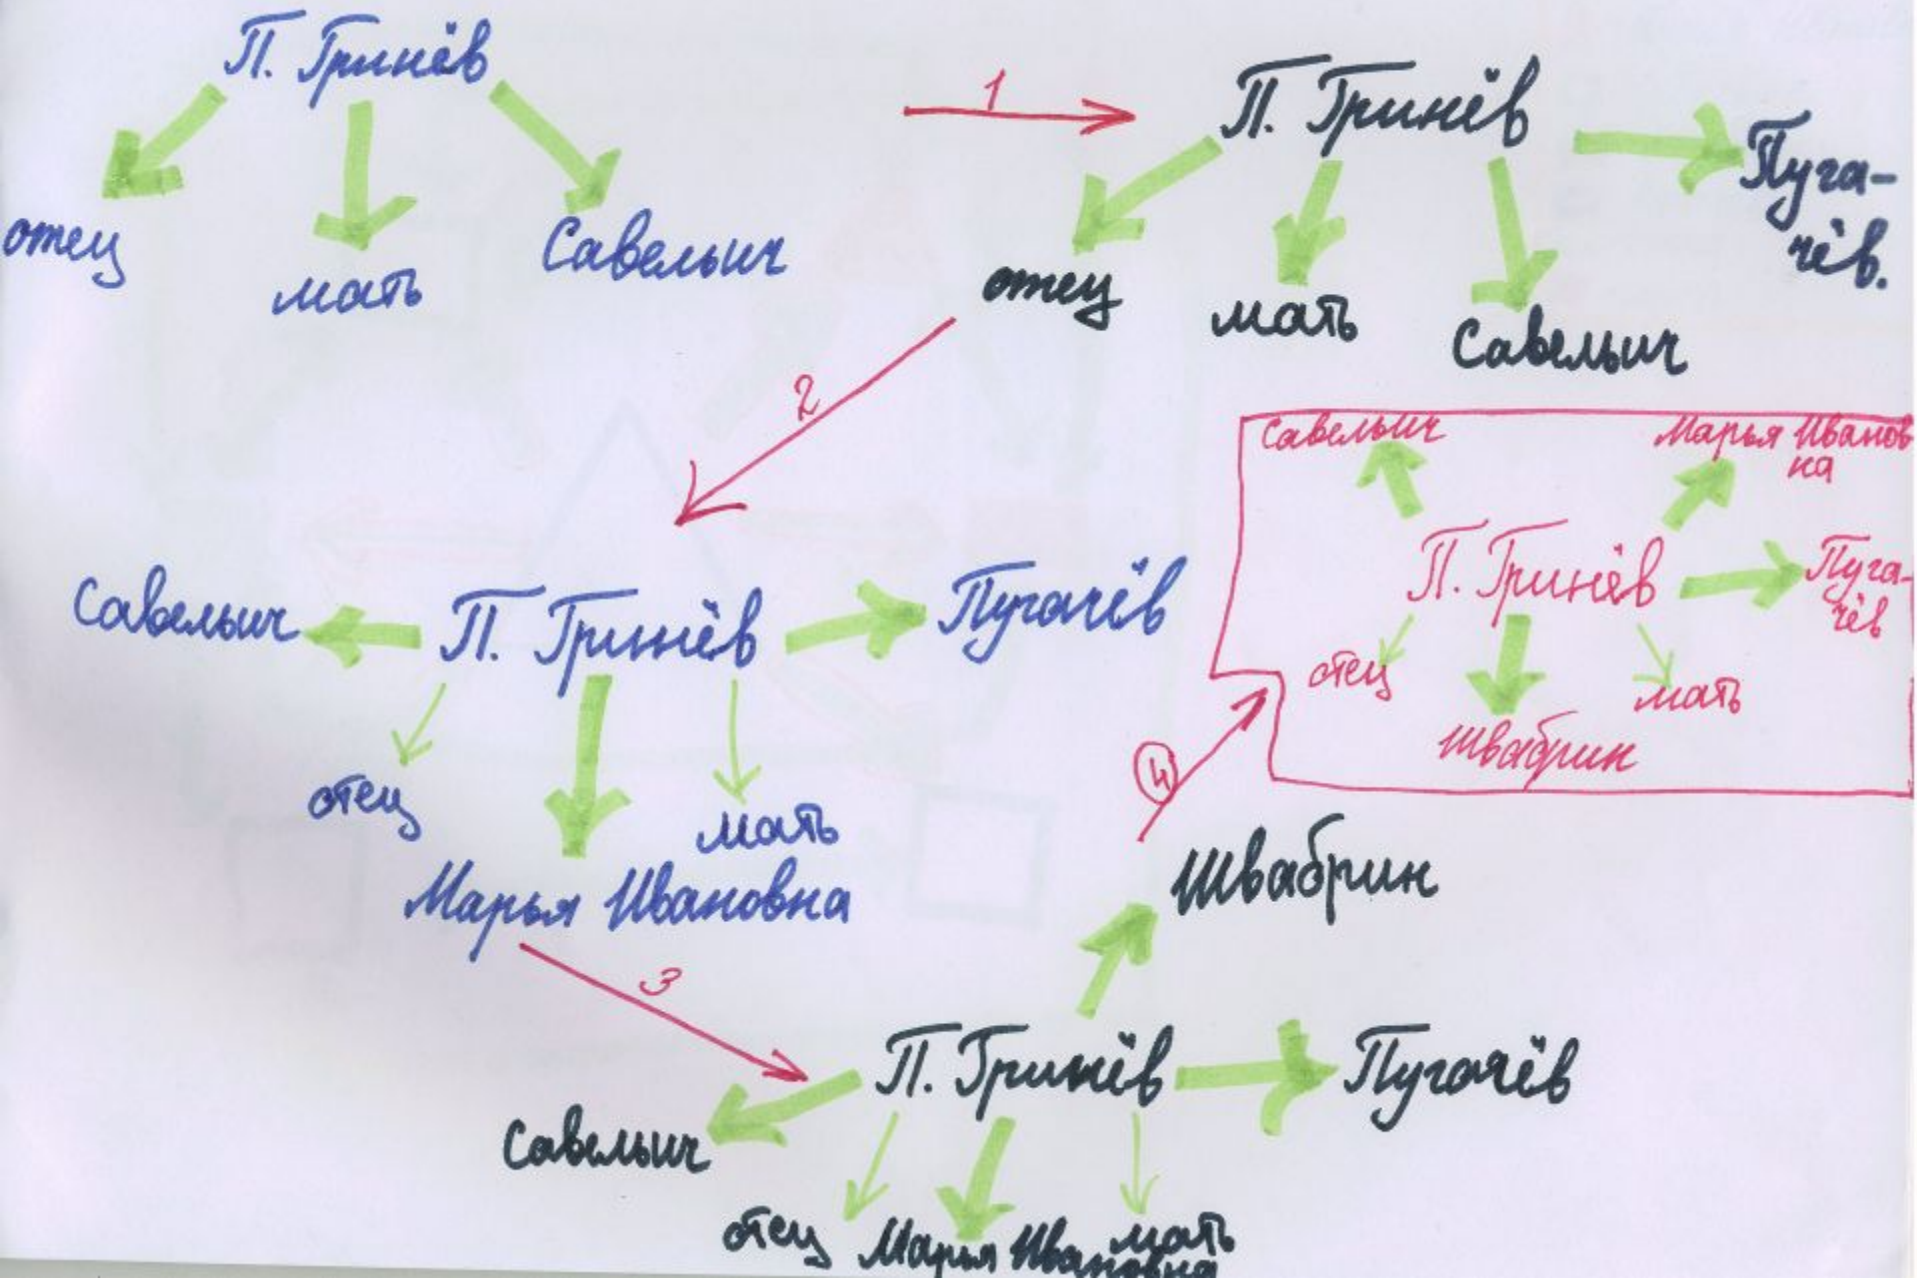 П. Гринёв
отец
мать
Савельич
1
П. Гринёв
отец
мать
Савельич
Пуга-
чёв.
2
Савельич
П. Гринёв
Пугачёв
отец
мать
Марья Ивановна
3
П. Гринёв
Швабрин
Пугачёв
Савельич
отец
Марья Ивановна
мать
4
Савельич
Марья Иванов
на
П. Гринёв
Пуга-
чёв
отец
Швабрин
мать